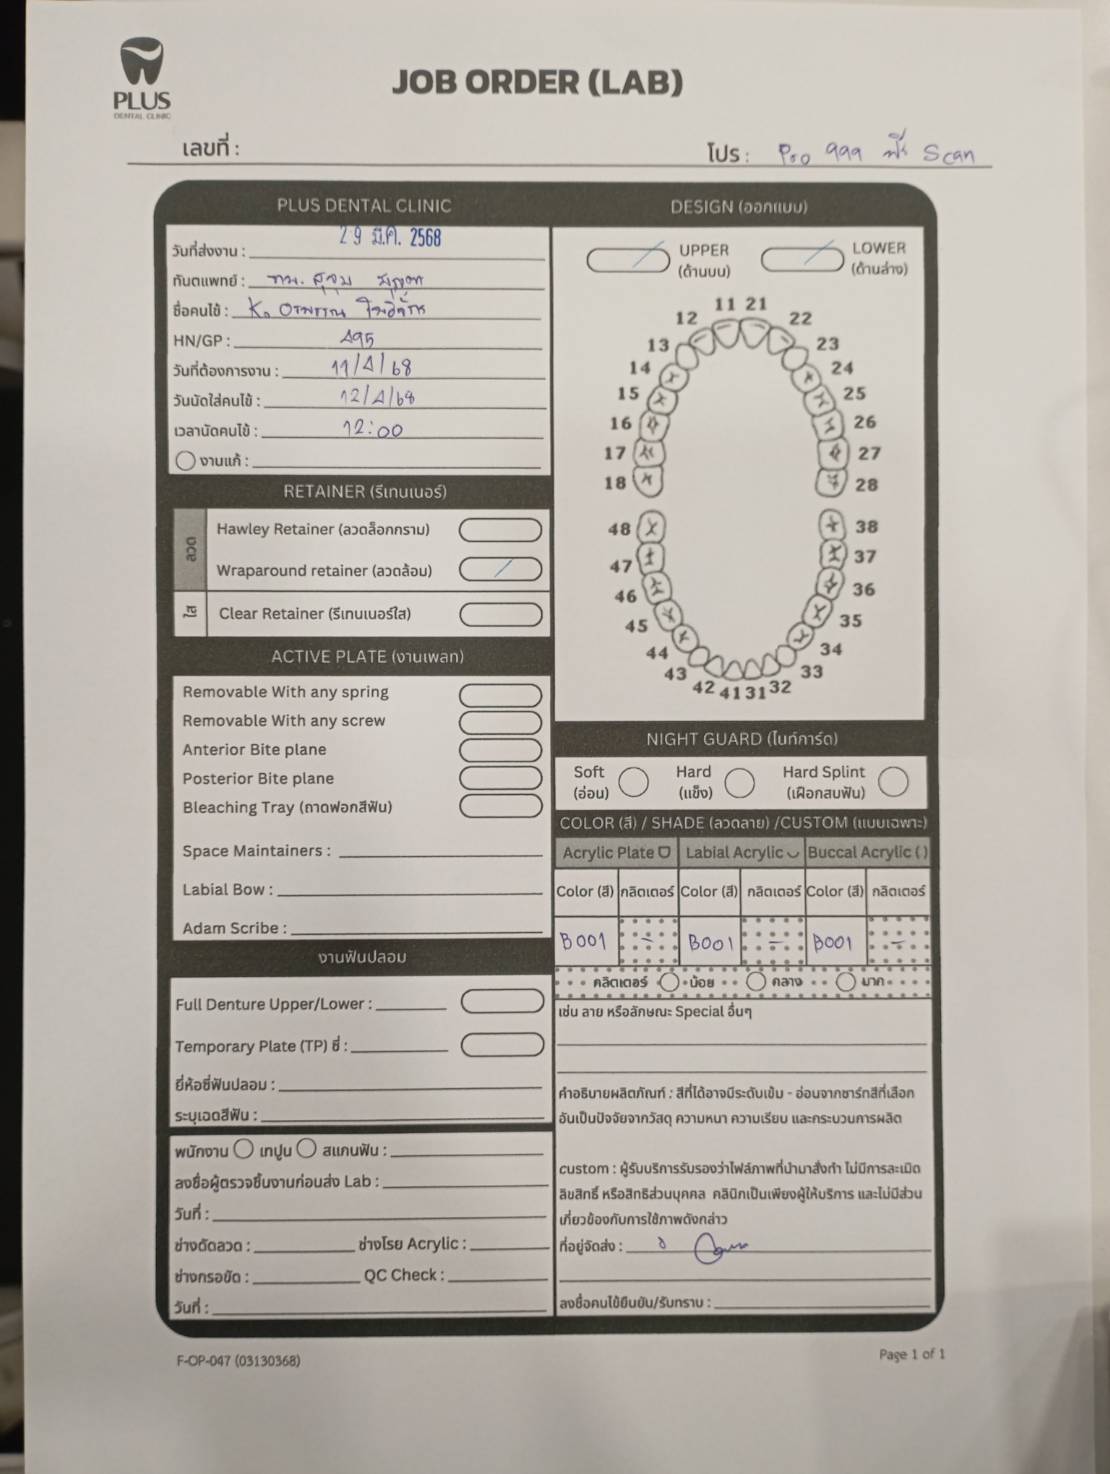 PLUS
DENTAL CLINIC
JOB ORDER (LAB)
เลขที่ :
โปร : Pro 999 ฟรี Scan
PLUS DENTAL CLINIC
วันที่ส่งงาน : 29 มี.ค. 2568
ทันตแพทย์ : ทพ.
ชื่อคนไข้ : K.
HN/GP : 495
วันที่ต้องการงาน : 11/4/68
วันนัดใส่คนไข้ : 12/4/68
เวลานัดคนไข้ : 12:00
งานแก้ :
RETAINER (รีเทนเนอร์)
ลวด
Hawley Retainer (ลวดล็อกกราม)
Wraparound retainer (ลวดล้อม)
ใส
Clear Retainer (รีเทนเนอร์ใส)
ACTIVE PLATE (งานเพลท)
Removable With any spring
Removable With any screw
Anterior Bite plane
Posterior Bite plane
Bleaching Tray (ถาดฟอกสีฟัน)
Space Maintainers :
Labial Bow :
Adam Scribe :
งานฟันปลอม
Full Denture Upper/Lower :
Temporary Plate (TP) ซี่ :
ยี่ห้อซี่ฟันปลอม :
ระบุเฉดสีฟัน :
พนักงาน เทปูน สแกนฟัน :
ลงชื่อผู้ตรวจชิ้นงานก่อนส่ง Lab :
วันที่ :
ช่างดัดลวด : ช่างโรย Acrylic :
ช่างกรอขัด : QC Check :
วันที่ :
DESIGN (ออกแบบ)
UPPER LOWER
(ด้านบน) (ด้านล่าง)
11 21
12 22
13 23
14 24
15 25
16 26
17 27
18 28
48 38
47 37
46 36
45 35
44 34
43 33
42 41 31 32
NIGHT GUARD (ไนท์การ์ด)
Soft Hard Hard Splint
(นิ่ม) (แข็ง) (เฝือกสบฟัน)
COLOR (สี) / SHADE (ลวดลาย) /CUSTOM (แบบเฉพาะ)
Acrylic Plate Labial Acrylic Buccal Acrylic ( )
Color (สี) กลิตเตอร์ Color (สี) กลิตเตอร์ Color (สี) กลิตเตอร์
B001 - B001 - B001 -
กลิตเตอร์ น้อย กลาง มาก
เช่น ลาย หรือลักษณะ Special อื่นๆ
คำอธิบายผลิตภัณฑ์ : สีที่ได้อาจมีระดับเข้ม - อ่อนจากชาร์ทสีที่เลือก
อันเป็นปัจจัยจากวัสดุ ความหนา ความเรียบ และกระบวนการผลิต
custom : ผู้รับบริการรับรองว่าไฟล์ภาพที่นำมาสั่งทำ ไม่มีการละเมิด
ลิขสิทธิ์ หรือสิทธิส่วนบุคคล คลินิกเป็นเพียงผู้ให้บริการ และไม่มีส่วน
เกี่ยวข้องกับการใช้ภาพดังกล่าว
ที่อยู่จัดส่ง :
ลงชื่อคนไข้ยืนยัน/รับทราบ :
F-OP-047 (03130368)
Page 1 of 1